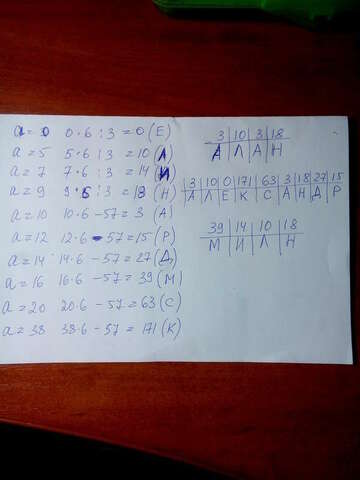 a = 0 0·6 : 3 = 0 (Е)
a = 5 5·6 : 3 = 10 (Л)
a = 7 7·6 : 3 = 14 (И)
a = 9 9·6 : 3 = 18 (Н)
a = 10 10·6 - 57 = 3 (А)
a = 12 12·6 - 57 = 15 (Р)
a = 14 14·6 - 57 = 27 (Д)
a = 16 16·6 - 57 = 39 (М)
a = 20 20·6 - 57 = 63 (С)
a = 38 38·6 - 57 = 171 (К)
3 | 10 | 3 | 18
А | Л | А | Н
3 | 10 | 0 | 171 | 63 | 3 | 18 | 27 | 15
А | Л | Е | К | С | А | Н | Д | Р
39 | 14 | 10 | 18
М | И | Л | Н